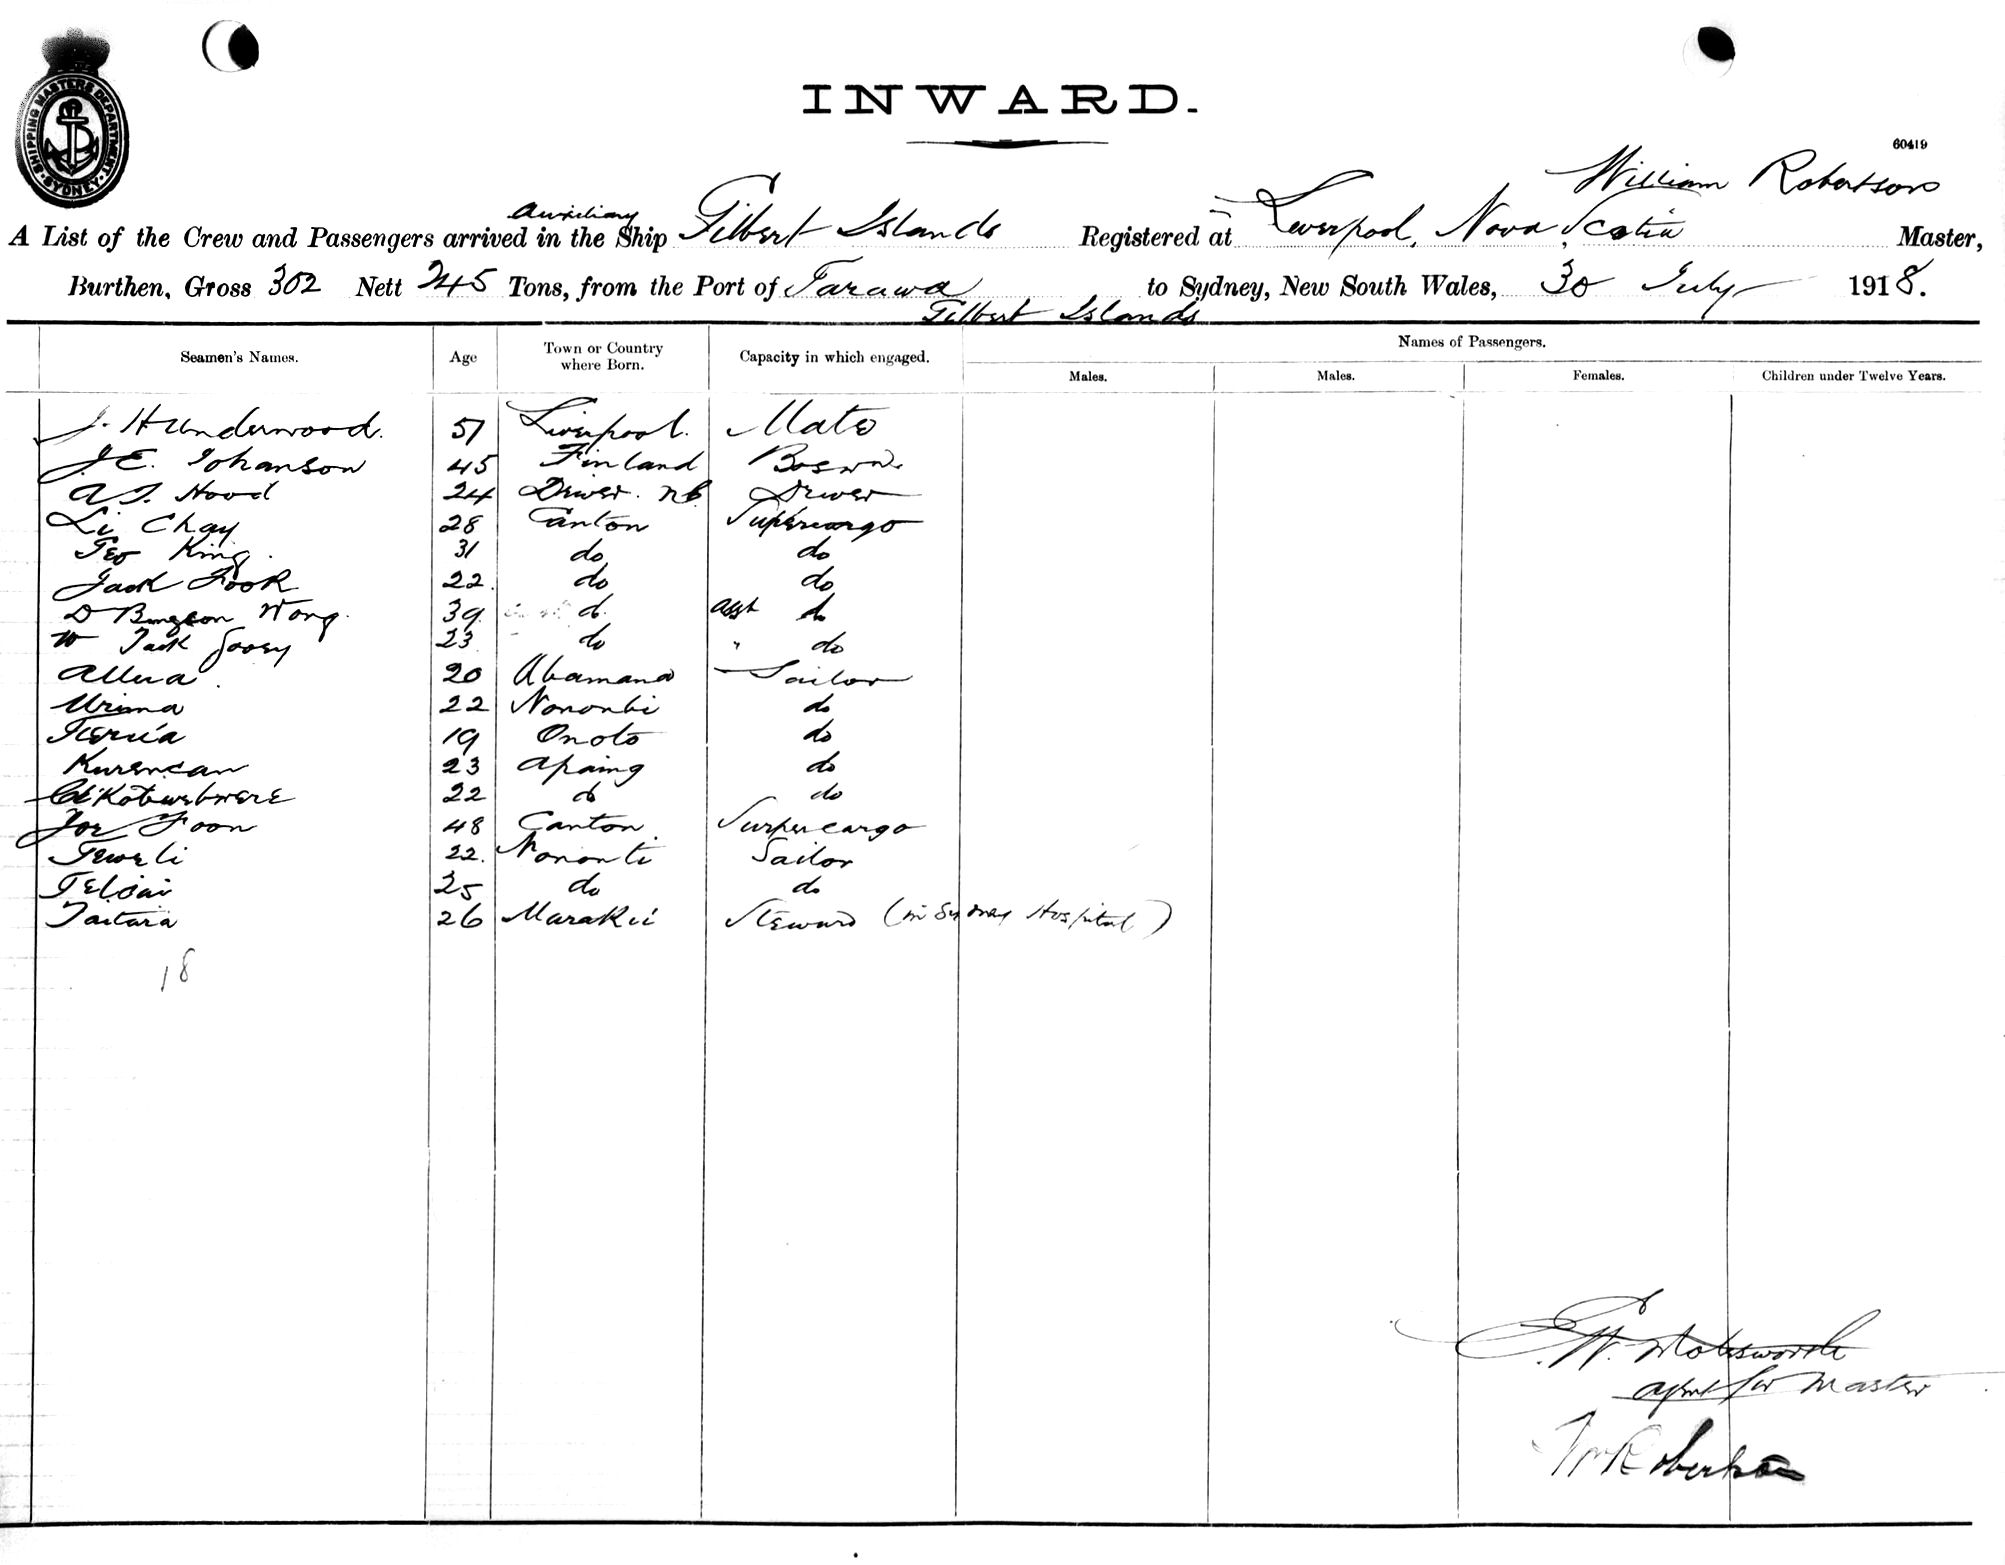 SHIPPING MASTERS DEPARTMENT. SYDNEY.
INWARD.
60419
William Robertson
Auxiliary
A List of the Crew and Passengers arrived in the Ship Gilbert Islands Registered at Liverpool, Nova Scotia Master,
Burthen, Gross 302 Nett 245 Tons, from the Port of Tarawa to Sydney, New South Wales, 30 July 1918.
Gilbert Islands
Seamen's Names. Age Town or Country where Born. Capacity in which engaged. Names of Passengers.
Males. Males. Females. Children under Twelve Years.
J. H Underwood. 51 Liverpool. Mate
J. E. Johanson 45 Finland Boswn
A. J. Hood 24 Driver
Li Chay 28 Canton Supercargo
Geo King. 31 do do
Jack Fook 22. do do
D Wong. 39. do asst do
Jack 23 do " do
Allua 20 Abamana Sailor
Urima 22 Nononti do
19 Onoto do
23 Apaing do
22 do do
Joe Foon 48 Canton. Surpercargo
Teweti 22. Nononti Sailor
25 do do
Taitara 26 Marakei Steward (in Sydney Hospital)
18
E. W. Molesworth
agent for Master
Wm Robertson